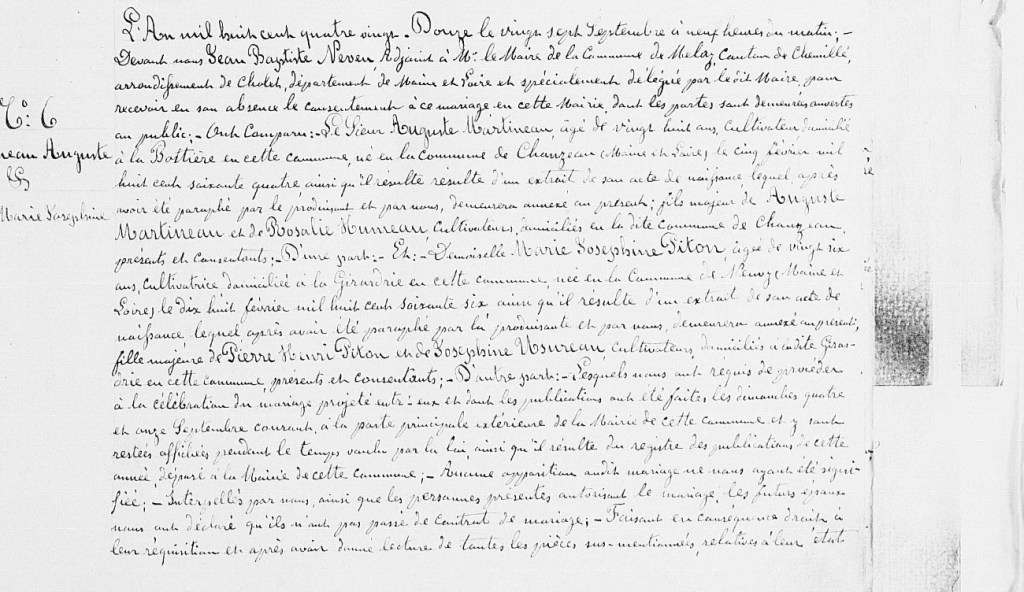 L'An mil huit cent quatre vingt - Douze le vingt sept Septembre à neuf heures du matin ; -
Devant nous Jean Baptiste Neveu Adjoint à Mr. le Maire de la Commune de Melay, Canton de Chemillé,
arrondissement de Cholet, département de Maine et Loire et spécialement délégué par le dit Maire, pour
recevoir en son absence le consentement à ce mariage en cette Mairie, dont les partes sont demeurées ouvertes
au public ; - Ont Comparu : - Le Sieur Auguste Martineau, âgé de vingt huit ans, Cultivateur domicilié
No: 6
à la Bottière en cette commune, né en la Commune de Chanzeau (Maine et Loire) le cinq février mil
neau Auguste
huit cent soixante quatre, ainsi qu'il résulte résulte d'un extrait de son acte de naissance lequel, après
&
avoir été paraphé par le produisant et par nous, demeurera annexé au présent ; fils majeur de Auguste
Marie Josephine
Martineau et de Rosalie Humeau, Cultivateurs, domiciliés en la dite Commune de Chanzeau,
présents et Consentants ; - D'une part : - Et : - Demoiselle Marie Josephine Piton, âgée de vingt six
ans, Cultivatrice domiciliée à la Girardrie en cette commune, née en la Commune de Neuvy (Maine et
Loire) le dix huit février mil huit cent soixante six ainsi qu'il résulte d'un extrait de son acte de
naissance lequel après avoir été paraphé par la produisante et par nous, demeurera annexé au présent ;
fille majeure de Pierre Henri Piton et de Josephine Usureau Cultivateurs, domiciliés à la dite Girar-
drie en cette commune, présents et consentants ; - D'autre part : - Lesquels nous ont requis de procéder
à la célébration du mariage projeté entr'eux et dont les publications ont été faites les dimanches quatre
et onze Septembre courant, à la porte principale extérieure de la Mairie de cette commune et y sont
restées affichées pendant le temps voulu par la loi, ainsi qu'il résulte du registre des publications de cette
année déposé à la Mairie de cette commune ; - Aucune opposition audit mariage ne nous ayant été signi-
fiée ; - Interpellés par nous, ainsi que les personnes présentes autorisant le mariage, les futurs époux
nous ont déclaré qu'ils n'ont pas passé de contrat de mariage ; - Faisant en conséquence droit à
leur réquisition et après avoir donné lecture de toutes les pièces sus-mentionnées, relatives à leur état